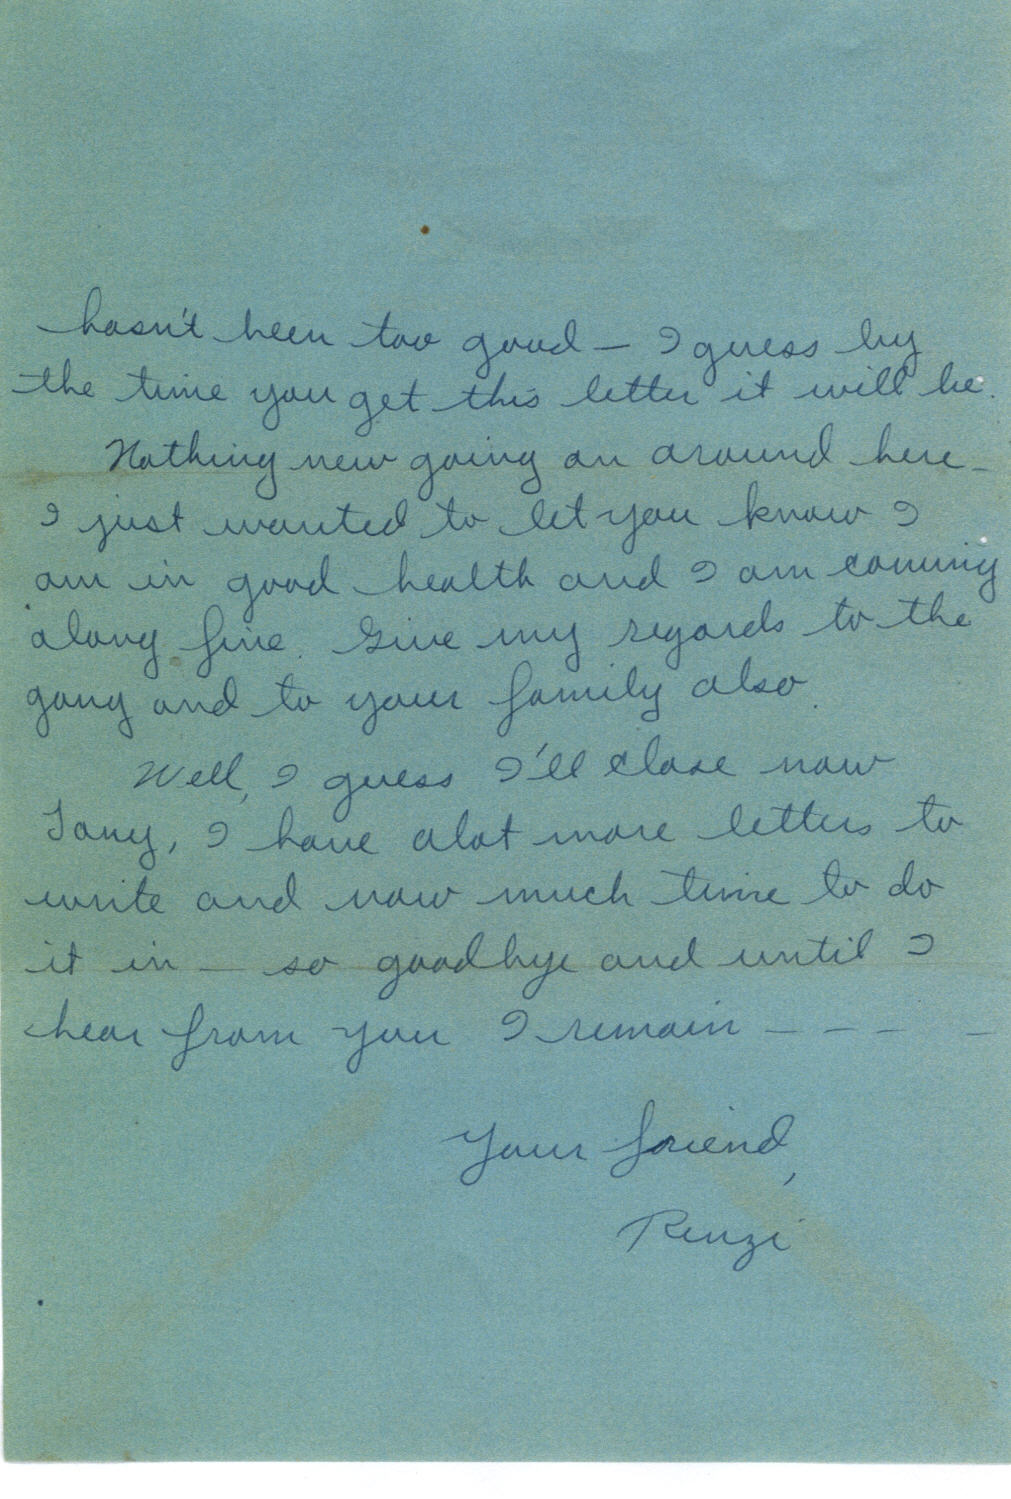 hasn't been too good — I guess by
the time you get this letter it will be.
Nothing new going on around here —
I just wanted to let you know I
am in good health and I am coming
along fine. Give my regards to the
gang and to your family also.
Well, I guess I'll close now
Tony, I have alot more letters to
write and now much time to do
it in — so goodbye and until I
hear from you I remain — — — —
Your friend,
Renzi